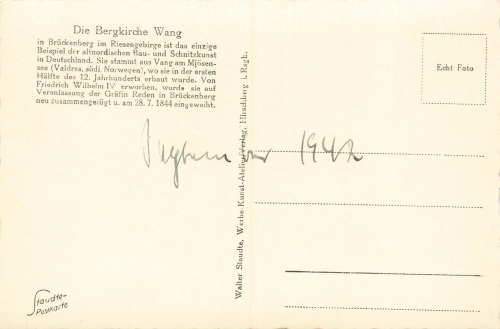 Die Bergkirche Wang
in Brückenberg im Riesengebirge ist das einzige
Beispiel der altnordischen Bau- und Schnitzkunst
in Deutschland. Sie stammt aus Vang am Mjösen-
see (Valdres, südl. Norwegen), wo sie in der ersten
Hälfte des 12. Jahrhunderts erbaut wurde. Von
Friedrich Wilhelm IV erworben, wurde sie auf
Veranlassung der Gräfin Reden in Brückenberg
neu zusammengefügt u. am 28. 7. 1844 eingeweiht.
Echt Foto
September 1942
Walter Staudte, Werbe-Kunst-Atelier/Verlag, Hirschberg i. Rsgb.
Staudte-
Postkarte